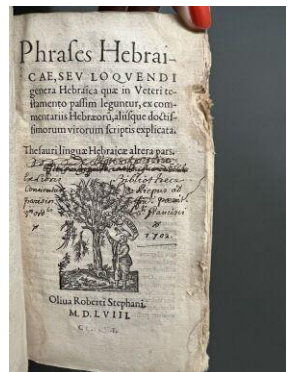 Phrases Hebrai-
CAE, SEV LOQVENDI
genera Hebraica quæ in Veteri te-
stamento passim leguntur, ex com-
mentariis Hebræorũ, aliísque doctis-
simorum virorum scriptis explicata.
Thesauri linguæ Hebraicæ altera pars.
Ex Libris Bibliothecæ
Conventus
1702.
Oliua Roberti Stephani.
M. D. LVIII.